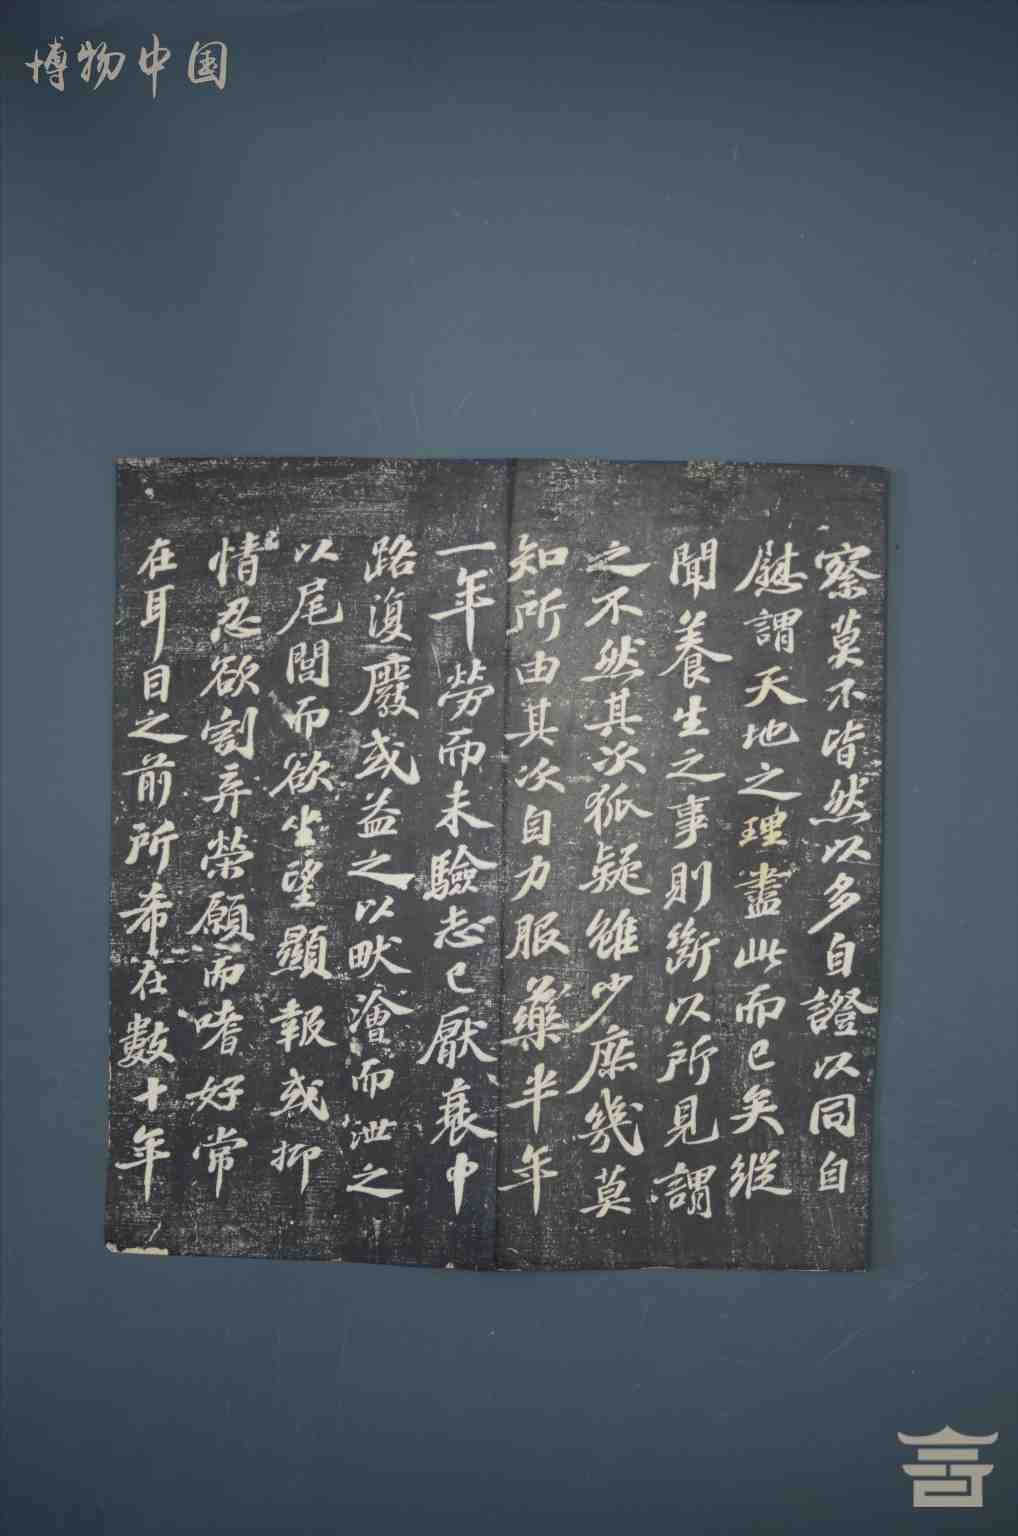 博物中国
察莫不皆然以多自證以同自
慰謂天地之理盡此而已矣縱
聞養生之事則斷以所見謂
之不然其次狐疑雖少庶幾莫
知所由其次自力服藥半年
一年勞而未驗志已厭衰中
路復廢或益之以畎澮而泄之
以尾閭而欲坐望顯報或抑
情忍欲割弃榮願而嗜好常
在耳目之前所希在數十年